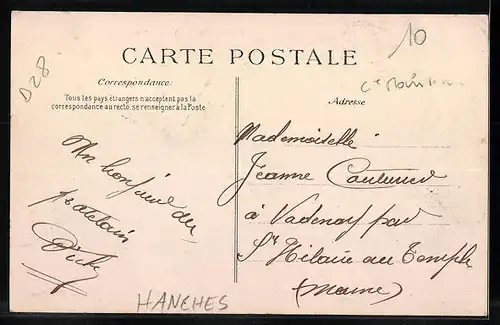 D28
10
CARTE POSTALE
Correspondance
Tous les pays étrangers n'acceptent pas la
correspondance au recto, se renseigner à la Poste
Adresse
Un bonjour du
Mademoiselle
Jeanne
à Vadenay par
St Hilaire au Temple
(Marne)
HANCHES